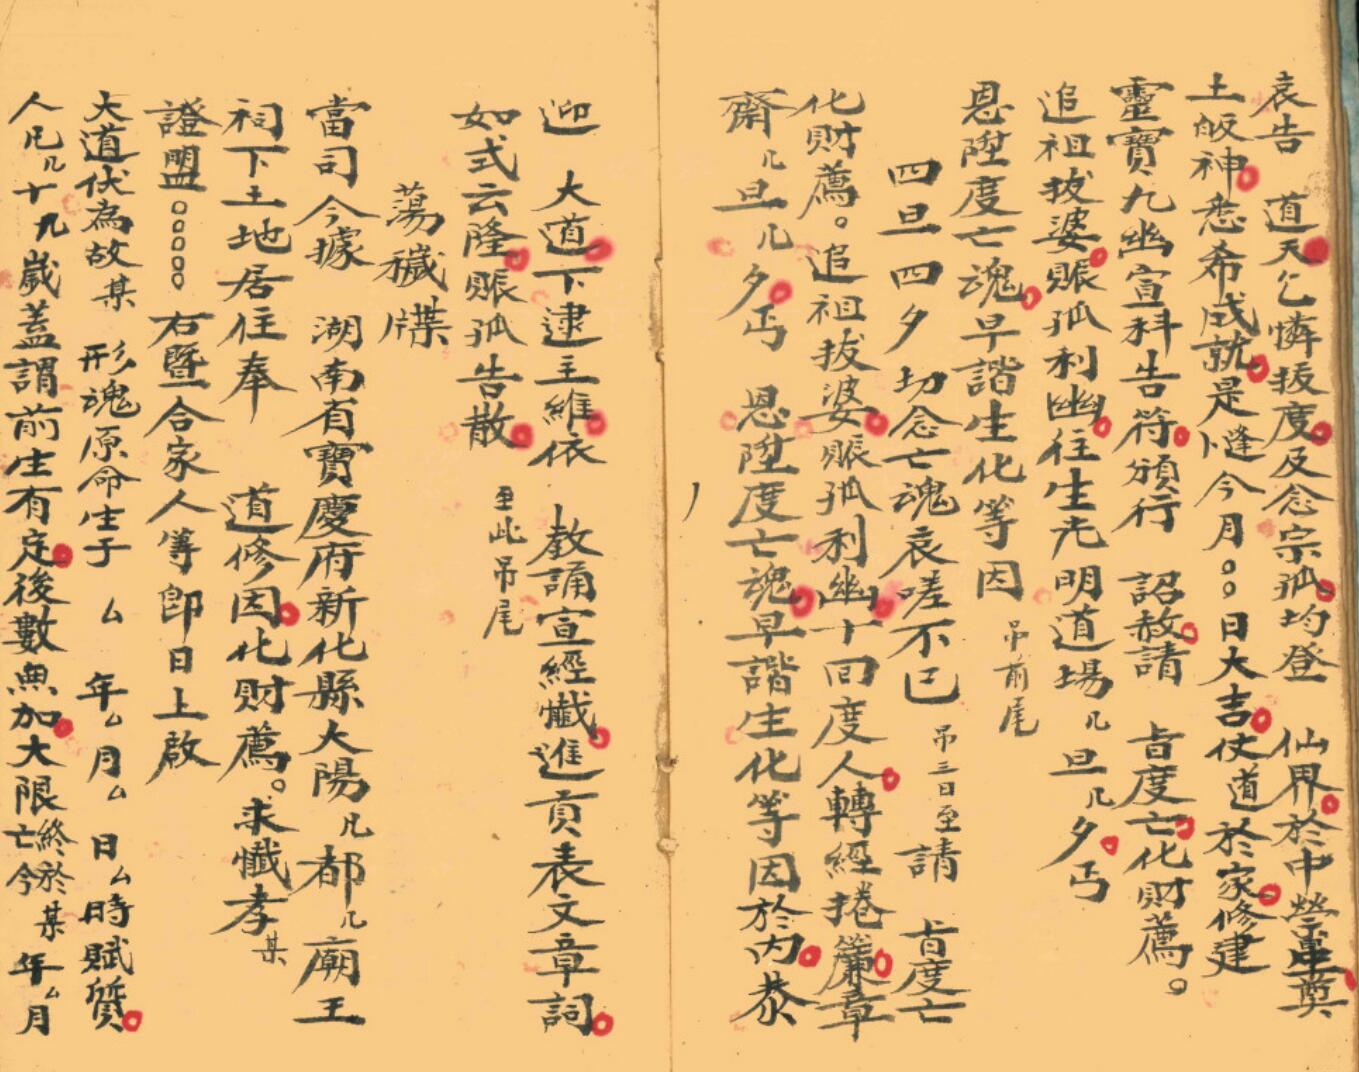 哀告　道天乞憐拔度及念宗孤均登　仙界於中營[?]奠
土皈神悉希成就是以涓今月。。日大吉仗道於家修建
靈寶九幽宣科告符頒行　詔赦請　旨度亡化財薦。
追祖拔婆賑孤利幽往生光明道場几旦几夕丐
恩陞度亡魂早諧生化等因　吊前尾
四旦四夕　切念亡魂哀嗟不已　吊三日至請　旨度亡
化財薦。追祖拔婆賑孤利幽十回度人轉經捲簾章
齋几旦几夕丐　恩陞度亡魂早諧生化等因於內恭
迎　大道下逮主維依　教誦宣經懺進貢表文章詞
如式云隆賑孤告散　至此吊尾
蕩穢牒
當司今據　湖南省寶慶府新化縣大陽几都几廟王
祠下土地居住奉　道修因化財薦。求懺孝某
證盟。。。。。右暨合家人等卽日上啟
大道伏為故某　形魂原命生于　厶　年厶月厶　日厶時賦質
人凡几十九歲蓋謂前生有定後數無加大限終於某年厶月
亡今